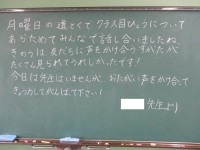 月曜日の道とくで クラス目ひょうについて
あらためてみんなで話し合いましたね。
きのうは 友だちに声をかけ合うすがたが
たくさん見られてうれしかったです!
今日は先生はいませんが おたがい声をかけ合って
きょう力してがんばって下さい!
先生より